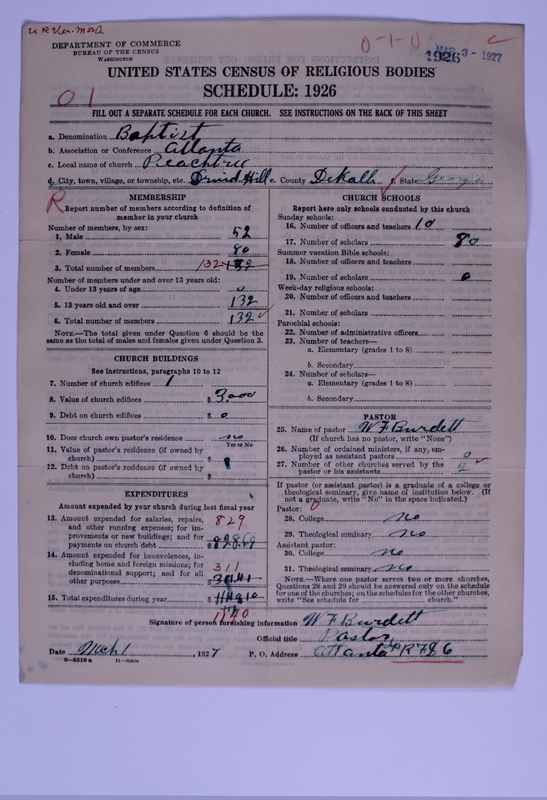 DEPARTMENT OF COMMERCE
BUREAU OF THE CENSUS
WASHINGTON
0-1-0
MAR 3 - 1927
1926
UNITED STATES CENSUS OF RELIGIOUS BODIES
SCHEDULE: 1926
01
FILL OUT A SEPARATE SCHEDULE FOR EACH CHURCH. SEE INSTRUCTIONS ON THE BACK OF THIS SHEET
a. Denomination Baptist
b. Association or Conference Atlanta
c. Local name of church Peachtree
d. City, town, village, or township, etc. Druid Hill e. County DeKalb f. State Georgia
R
MEMBERSHIP
Report number of members according to definition of
member in your church
Number of members, by sex:
1. Male 52
2. Female 80
3. Total number of members 132
Number of members under and over 13 years old:
4. Under 13 years of age 0
5. 13 years old and over 132
6. Total number of members 132
NOTE.—The total given under Question 6 should be the
same as the total of males and females given under Question 3.
CHURCH BUILDINGS
See instructions, paragraphs 10 to 12
7. Number of church edifices 1
8. Value of church edifices $ 3,000
9. Debt on church edifices $ 0
10. Does church own pastor's residence no
Yes or No
11. Value of pastor's residence (if owned by
church) $
12. Debt on pastor's residence (if owned by
church) $
EXPENDITURES
Amount expended by your church during last fiscal year
13. Amount expended for salaries, repairs,
and other running expenses; for im-
provements or new buildings; and for
payments on church debt 829 $ 828.69
14. Amount expended for benevolences, in-
cluding home and foreign missions; for
denominational support; and for all
other purposes 311
15. Total expenditures during year $ 1140
CHURCH SCHOOLS
Report here only schools conducted by this church
Sunday schools:
16. Number of officers and teachers 10
17. Number of scholars 80
Summer vacation Bible schools:
18. Number of officers and teachers
19. Number of scholars 0
Week-day religious schools:
20. Number of officers and teachers
21. Number of scholars
Parochial schools:
22. Number of administrative officers
23. Number of teachers—
a. Elementary (grades 1 to 8)
b. Secondary
24. Number of scholars—
a. Elementary (grades 1 to 8)
b. Secondary
PASTOR
25. Name of pastor W F Burdett
(If church has no pastor, write "None")
26. Number of ordained ministers, if any, em-
ployed as assistant pastors 0
27. Number of other churches served by the
pastor or his assistants
If pastor (or assistant pastor) is a graduate of a college or
theological seminary, give name of institution below. (If
not a graduate, write "No" in the space indicated.)
Pastor: 0
28. College no
29. Theological seminary no
Assistant pastor:
30. College no
31. Theological seminary no
NOTE.—Where one pastor serves two or more churches,
Questions 28 and 29 should be answered only on the schedule
for one of the churches; on the schedules for the other churches,
write "See schedule for church."
Signature of person furnishing information W F Burdett
Official title Pastor
Date Mch 1, 1927 P. O. Address Atlanta
8-5518 a